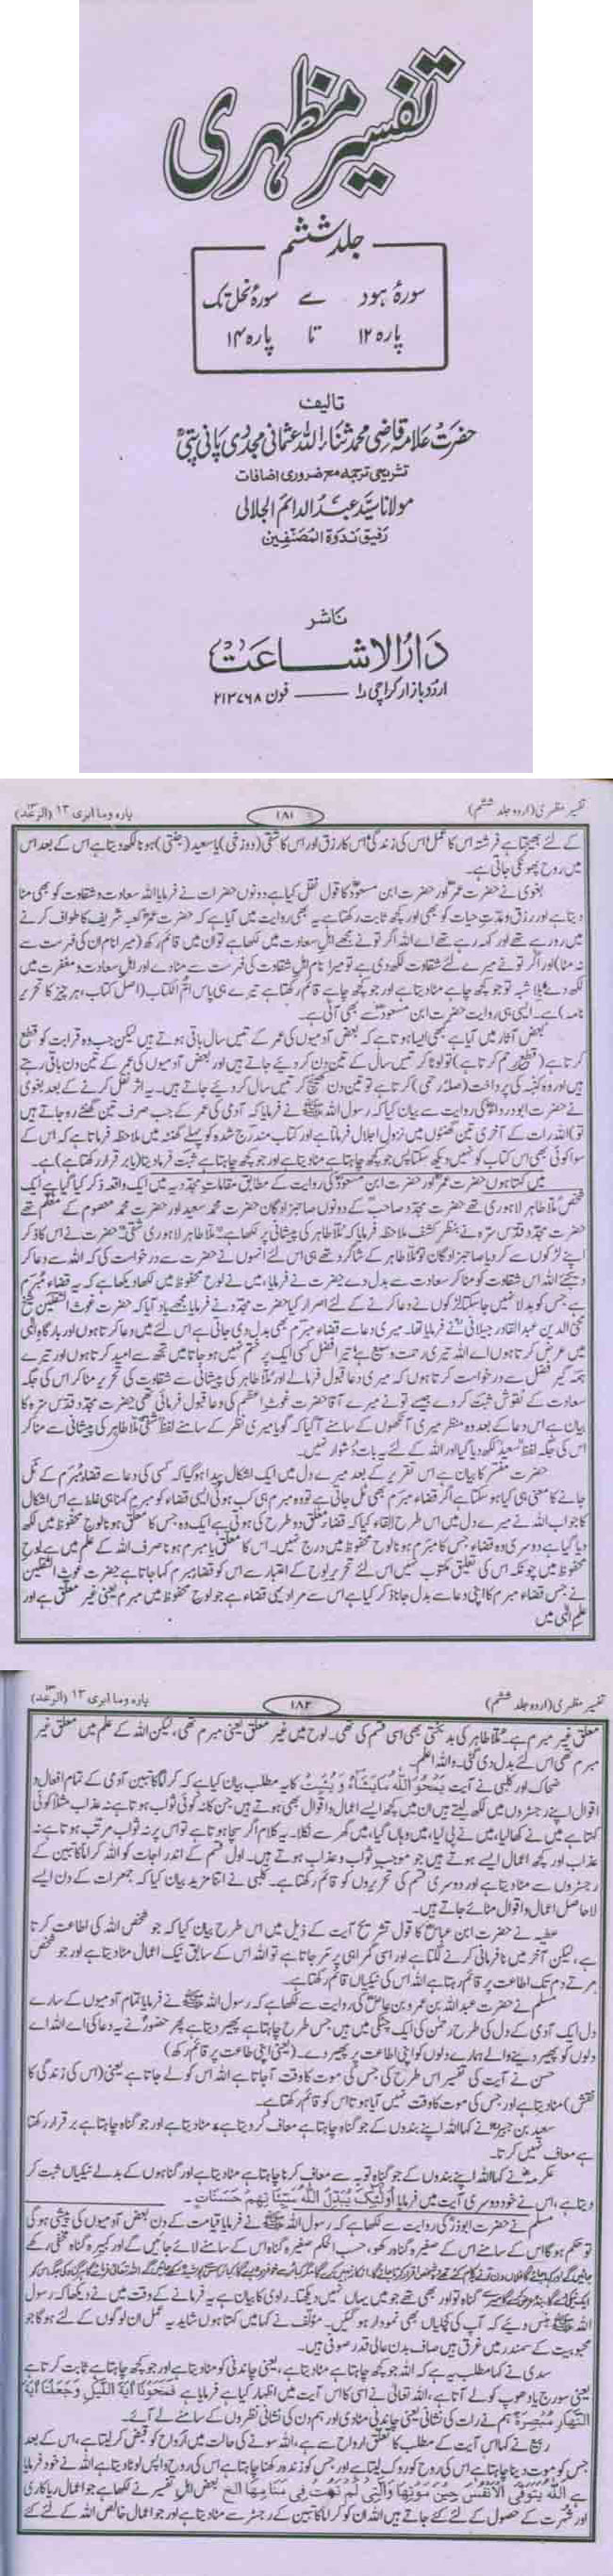 تفسیر مظہری
جلد ششم
سورۂ ہود سے سورۂ نحل تک
پارہ ۱۲ تا پارہ ۱۴
تالیف
حضرت علامہ قاضی محمد ثناء اللہ عثمانی مجددی پانی پتیؒ
تشریحی ترجمہ مع ضروری اضافات
مولانا سید عبد الدائم الجلالی
رفیق ندوۃ المصنفین
ناشر
دار الاشاعت
اردو بازار کراچی ۱ فون ۲۱۳۷۶۸
تفسیر مظہری (اردو جلد ششم) ۱۸۱ پارہ وما ابری ۱۳ (الرعد)
کے لئے بھیجتا ہے فرشتہ اس کا عمل اس کی زندگی اس کا رزق اور اس کا شقی (دوزخی) یا سعید (جنتی) ہونا لکھ دیتا ہے اس کے بعد اس
میں روح پھونکی جاتی ہے۔
بغوی نے حضرت عمرؓ اور حضرت ابن مسعودؓ کا قول نقل کیا ہے دونوں حضرات نے فرمایا اللہ سعادت و شقاوت کو بھی مٹا
دیتا ہے اور رزق و مدت حیات کو بھی اور کچھ ثابت رکھتا ہے یہ بھی روایت میں آیا ہے کہ حضرت عمرؓ کعبہ شریف کا طواف کرنے
میں رو رہے تھے اور کہہ رہے تھے اے اللہ اگر تو نے مجھے اہل سعادت میں لکھا ہے تو ان میں قائم رکھ (میرا نام ان کی فہرست سے
نہ مٹا) اور اگر تو نے میرے لئے شقاوت لکھ دی ہے تو میرا نام اہل شقاوت کی فہرست سے مٹا دے اور اہل سعادت و مغفرت میں
لکھ دے بلا شبہ تو جو کچھ چاہے مٹا دیتا ہے اور جو کچھ چاہے قائم رکھتا ہے تیرے ہی پاس ام الکتاب (اصل کتاب، ہر چیز کا تحریر
نامہ) ہے۔ ایسی ہی روایت حضرت ابن مسعودؓ سے بھی آئی ہے۔
بعض آثار میں آیا ہے کبھی ایسا ہوتا ہے کہ بعض آدمیوں کی عمر کے تیس سال باقی ہوتے ہیں لیکن جب وہ قرابت کو قطع
کرتا ہے
ہیں اور وہ کنبہ کی پرداخت (صلہ رحمی) کرتا ہے تو تین دن کھینچ کر تیس سال کر دیئے جاتے ہیں۔ یہ اثر نقل کرنے کے بعد بغوی
نے حضرت ابو درداءؓ کی روایت سے بیان کیا کہ رسول اللہ ﷺ نے فرمایا کہ آدمی کی عمر کے جب صرف تین گھنٹے رہ جاتے ہیں
تو اللہ رات کے آخری تین گھنٹوں میں نزول اجلال فرماتا ہے اور کتاب مندرج شدہ کو پہلے گھنٹہ میں ملاحظہ فرماتا ہے کہ اس کے
سوا کوئی بھی اس کتاب کو نہیں دیکھ سکتا پس جو کچھ چاہتا ہے مٹا دیتا ہے اور جو کچھ چاہتا ہے ثبت فرما دیتا (یا برقرار رکھتا) ہے۔
میں کہتا ہوں حضرت عمرؓ اور حضرت ابن مسعودؓ کی روایت کے مطابق مقامات مجددیہ میں ایک واقعہ ذکر کیا گیا ہے ایک
شخص ملا طاہر لاہوری تھے حضرت مجدد صاحبؒ کے دونوں صاحبزادگان حضرت محمد سعید اور حضرت محمد معصوم کے معلم تھے
حضرت مجدد قدس سرہ نے بنظر کشف ملاحظہ فرمایا کہ ملا طاہر کی پیشانی پر لکھا ہے "ملا طاہر لاہوری شقی" حضرت نے اس کا ذکر
اپنے لڑکوں سے کر دیا صاحبزادگان تو ملا طاہر کے شاگرد تھے ہی اس لئے انہوں نے حضرت سے درخواست کی کہ اللہ سے دعا کر
دیجئے اللہ اس شقاوت کو مٹا کر سعادت سے بدل دے حضرت نے فرمایا، میں نے لوح محفوظ میں لکھا دیکھا ہے کہ یہ قضاء مبرم
ہے جس کو بدلا نہیں جا سکتا لڑکوں نے دعا کرنے کے لئے اصرار کیا حضرت مجدد نے فرمایا مجھے یاد آیا کہ حضرت غوث الثقلین شیخ
محی الدین عبد القادر جیلانیؒ نے فرمایا تھا۔ میری دعا سے قضاء مبرم بھی بدل دی جاتی ہے اس لئے میں دعا کرتا ہوں اور بارگاہ الٰہی
میں عرض کرتا ہوں اے اللہ تیری رحمت وسیع ہے تیرا فضل کسی ایک پر ختم نہیں ہو جاتا میں تجھ سے امید کرتا ہوں اور تیرے
ہمہ گیر فضل سے درخواست کرتا ہوں کہ میری دعا قبول فرمالے اور ملا طاہر کی پیشانی سے شقاوت کی تحریر مٹا کر اس کی جگہ
سعادت کے نقوش ثبت کر دے جیسے تو نے میرے آقا حضرت غوث اعظم کی دعا قبول فرمائی تھی حضرت مجدد قدس سرہ کا
بیان ہے اس دعا کے بعد وہ منظر میری آنکھوں کے سامنے آگیا کہ گویا میری نظر کے سامنے لفظ شقی ملا طاہر کی پیشانی سے مٹا کر
اس کی جگہ لفظ سعید لکھ دیا گیا اور اللہ کے لئے یہ بات دشوار نہیں۔
حضرت مفسر کا بیان ہے اس تقریر کے بعد میرے دل میں ایک اشکال پیدا ہو گیا کہ کسی کی دعا سے قضاء مبرم کے ٹل
جانے کا معنی ہی کیا ہو سکتا ہے اگر قضاء مبرم بھی ٹل جاتی ہے تو وہ مبرم ہی کب ہوئی ایسی قضاء کو مبرم کہنا ہی غلط ہے اس اشکال
کا جواب اللہ نے میرے دل میں اس طرح القاء کیا کہ قضاء معلق دو طرح کی ہوتی ہے ایک وہ جس کا معلق ہونا لوح محفوظ میں لکھ
دیا گیا ہے دوسری وہ قضاء جس کا مبرم ہونا لوح محفوظ میں درج نہیں۔ اس کا معلق یا مبرم ہونا صرف اللہ کے علم میں ہے لوح
محفوظ میں چونکہ اس کی تعلیق مکتوب نہیں اس لئے تحریر لوح کے اعتبار سے اس کو قضاء مبرم کہا جاتا ہے حضرت غوث الثقلین
نے جس قضاء مبرم کا اپنی دعا سے بدل جانا ذکر کیا ہے اس سے مراد یہی قضاء ہے جو لوح محفوظ میں مبرم یعنی غیر معلق ہے اور
علم الٰہی میں
تفسیر مظہری (اردو جلد ششم) ۱۸۲ پارہ وما ابری ۱۳ (الرعد)
معلق غیر مبرم ہے۔ ملا طاہر کی بدبختی بھی اسی قسم کی تھی۔ لوح میں غیر معلق یعنی مبرم تھی، لیکن اللہ کے علم میں معلق غیر
مبرم تھی اس لئے بدل دی گئی۔ واللہ اعلم۔
ضحاک اور کلبی نے آیت یَمْحُوا اللّٰہُ مَا یَشَآءُ وَ یُثْبِتُ کا یہ مطلب بیان کیا ہے کہ کراماً کاتبین آدمی کے تمام افعال و
اقوال اپنے رجسٹروں میں لکھ لیتے ہیں ان میں کچھ ایسے اعمال و اقوال بھی ہوتے ہیں جن کا نہ کوئی ثواب ہوتا ہے نہ عذاب مثلاً کوئی
کہتا ہے میں نے کھا لیا، میں نے پی لیا، میں وہاں گیا، میں گھر سے نکلا۔ یہ کلام اگر سچا ہوتا ہے تو اس پر نہ ثواب مرتب ہوتا ہے نہ
عذاب اور کچھ اعمال ایسے ہوتے ہیں جو موجب ثواب و عذاب ہوتے ہیں۔ اول قسم کے اندراجات کو اللہ کراماً کاتبین کے
رجسٹروں سے مٹا دیتا ہے اور دوسری قسم کی تحریروں کو قائم رکھتا ہے۔ کلبی نے اتنا مزید بیان کیا کہ جمعرات کے دن ایسے
لاحاصل اعمال و اقوال مٹائے جاتے ہیں۔
عطیہ نے حضرت ابن عباسؓ کا قول تشریح آیت کے ذیل میں اس طرح بیان کیا کہ جو شخص اللہ کی اطاعت کرتا
ہے، لیکن آخر میں نافرمانی کرنے لگتا ہے اور اسی گمراہی پر مر جاتا ہے تو اللہ اس کے سابق نیک اعمال مٹا دیتا ہے اور جو شخص
مرتے دم تک اطاعت پر قائم رہتا ہے اللہ اس کی نیکیاں قائم رکھتا ہے۔
مسلم نے حضرت عبد اللہ بن عمرو بن عاصؓ کی روایت سے لکھا ہے کہ رسول اللہ ﷺ نے فرمایا تمام آدمیوں کے سارے
دل ایک آدمی کے دل کی طرح رحمٰن کی ایک چٹکی میں ہیں جس طرح چاہتا ہے پھیر دیتا ہے پھر حضورؐ نے یہ دعا کی اے اللہ اے
دلوں کو پھیر دینے والے ہمارے دلوں کو اپنی اطاعت پر پھیر دے۔ (یعنی اپنی طاعت پر قائم رکھ)
حسن نے آیت کی تفسیر اس طرح کی جس کی موت کا وقت آ جاتا ہے اللہ اس کو لے جاتا ہے یعنی (اس کی زندگی کا
نقش) مٹا دیتا ہے اور جس کی موت کا وقت نہیں آیا ہوتا اس کو قائم رکھتا ہے۔
سعید بن جبیرؒ نے کہا اللہ اپنے بندوں کے جو گناہ چاہتا ہے معاف کر دیتا ہے مٹا دیتا ہے اور جو گناہ چاہتا ہے برقرار رکھتا
ہے معاف نہیں کرتا۔
عکرمہؒ نے کہا اللہ اپنے بندوں کے جو گناہ توبہ سے معاف کرنا چاہتا ہے مٹا دیتا ہے اور گناہوں کے بدلے نیکیاں ثبت کر
دیتا ہے، اس نے خود دوسری آیت میں فرمایا أُولٰٓئِکَ یُبَدِّلُ اللّٰہُ سَیِّاٰتِہِمْ حَسَنَاتٍ۔
مسلم نے حضرت ابو ذرؓ کی روایت سے لکھا ہے کہ رسول اللہ ﷺ نے فرمایا قیامت کے دن بعض آدمیوں کی پیشی ہو گی
تو حکم ہو گا اس کے سامنے اس کے صغیرہ گناہ رکھو، حسب الحکم صغیرہ گناہ اس کے سامنے لائے جائیں گے اور کبیرہ گناہ مخفی رکھے
گناہ تو اور بھی تھے جو میں یہاں نہیں دیکھتا۔ راوی کا بیان ہے یہ فرمانے کے وقت میں نے دیکھا کہ رسول
اللہ ﷺ ہنس دیئے کہ آپ کی کچلیاں بھی نمودار ہو گئیں۔ مؤلف نے کہا میں کہتا ہوں شاید یہ عمل ان لوگوں کے لئے ہو گا جو
محبوبیت کے سمندر میں غرق ہیں صاف بدن عالی قدر صوفی ہیں۔
سدی نے کہا مطلب یہ ہے کہ اللہ جو کچھ چاہتا ہے مٹا دیتا ہے، یعنی چاندنی کو مٹا دیتا ہے اور جو کچھ چاہتا ہے ثابت کرتا ہے
یعنی سورج یا دھوپ کو لے آتا ہے، اللہ تعالیٰ نے اسی کا اس آیت میں اظہار کیا ہے فرمایا ہے فَمَحَوْنَا اٰیَۃَ اللَّیْلِ وَجَعَلْنَا اٰیَۃَ
النَّہَارِ مُبْصِرَۃً ہم نے رات کی نشانی یعنی چاندنی مٹا دی اور ہم دن کی نشانی نظروں کے سامنے لے آئے۔
ربیع نے کہا اس آیت کے مطلب کا تعلق ارواح سے ہے، اللہ سونے کی حالت میں ارواح کو قبض کر لیتا ہے، اس کے بعد
جس کو موت دینا چاہتا ہے اس کی روح کو روک لیتا ہے اور جس کو زندہ رکھنا چاہتا ہے اس کی روح واپس لوٹا دیتا ہے اللہ نے خود فرمایا
ہے اَللّٰہُ یَتَوَفَّی الْاَنْفُسَ حِیْنَ مَوْتِہَا وَالَّتِیْ لَمْ تَمُتْ فِیْ مَنَامِہَا الخ بعض اہل تفسیر نے لکھا ہے جو اعمال ریاکاری
اور شہرت کے حصول کے لئے کئے جاتے ہیں اللہ ان کو کراماً کاتبین کے رجسٹر سے مٹا دیتا ہے اور جو اعمال خالص اللہ کے لئے کئے